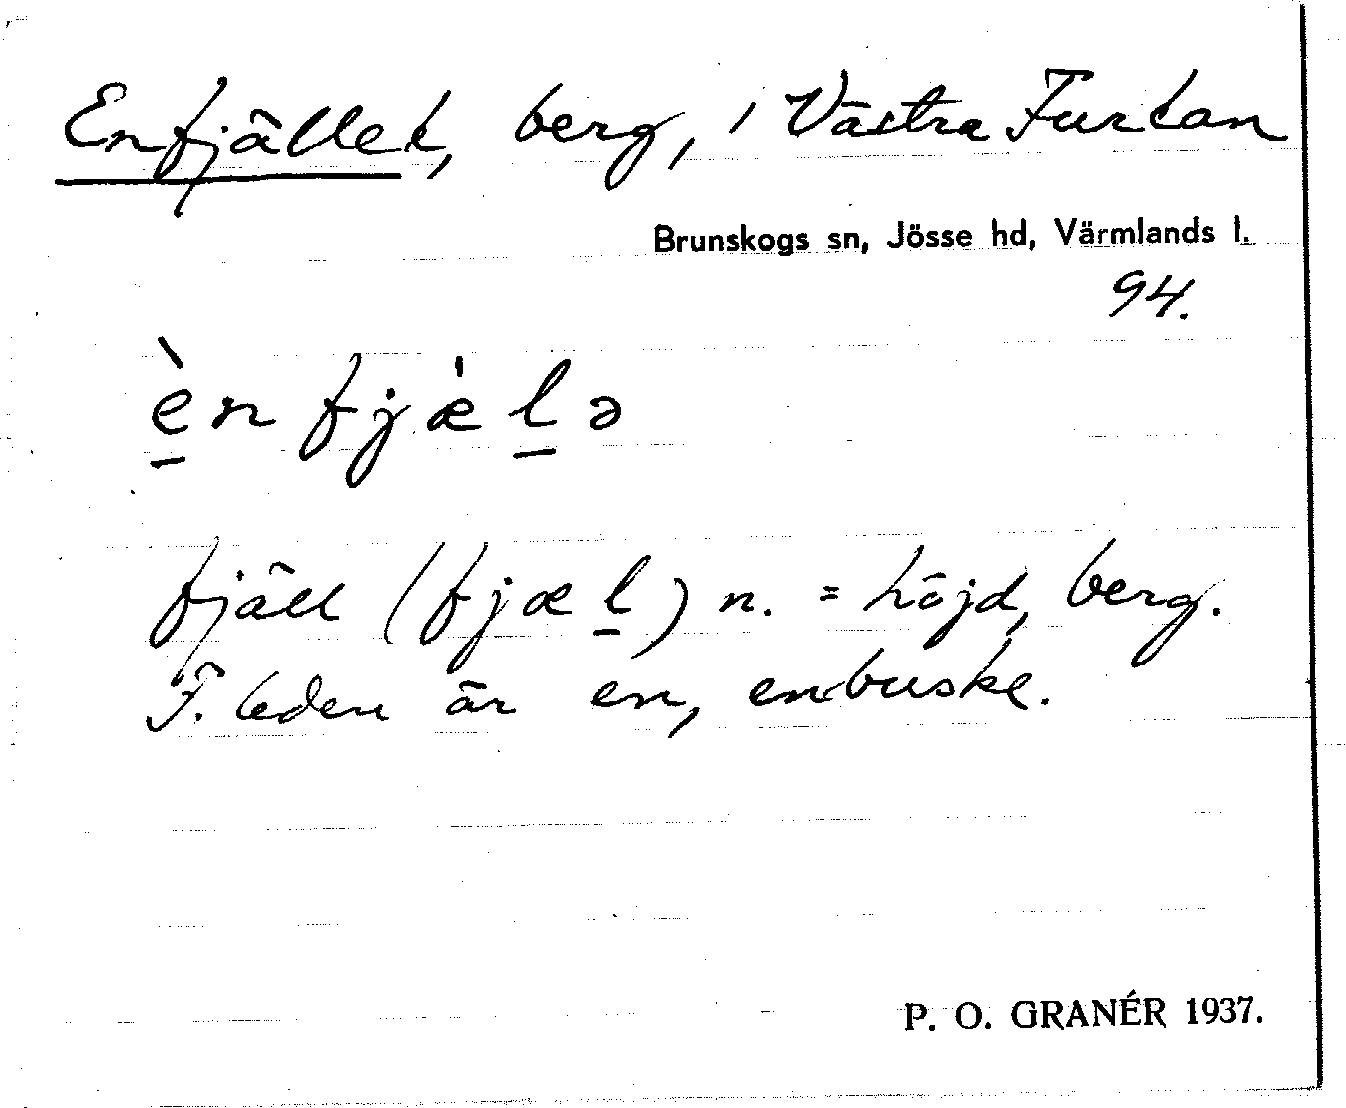 Enfjället, berg, i Västra Furtan
Brunskogs sn, Jösse hd, Värmlands l.
94.
ènfjæ̍l̠ə
fjäll (fjæl̠) n. = höjd, berg.
F. leden är en, enbuske.
P. O. GRANÉR 1937.